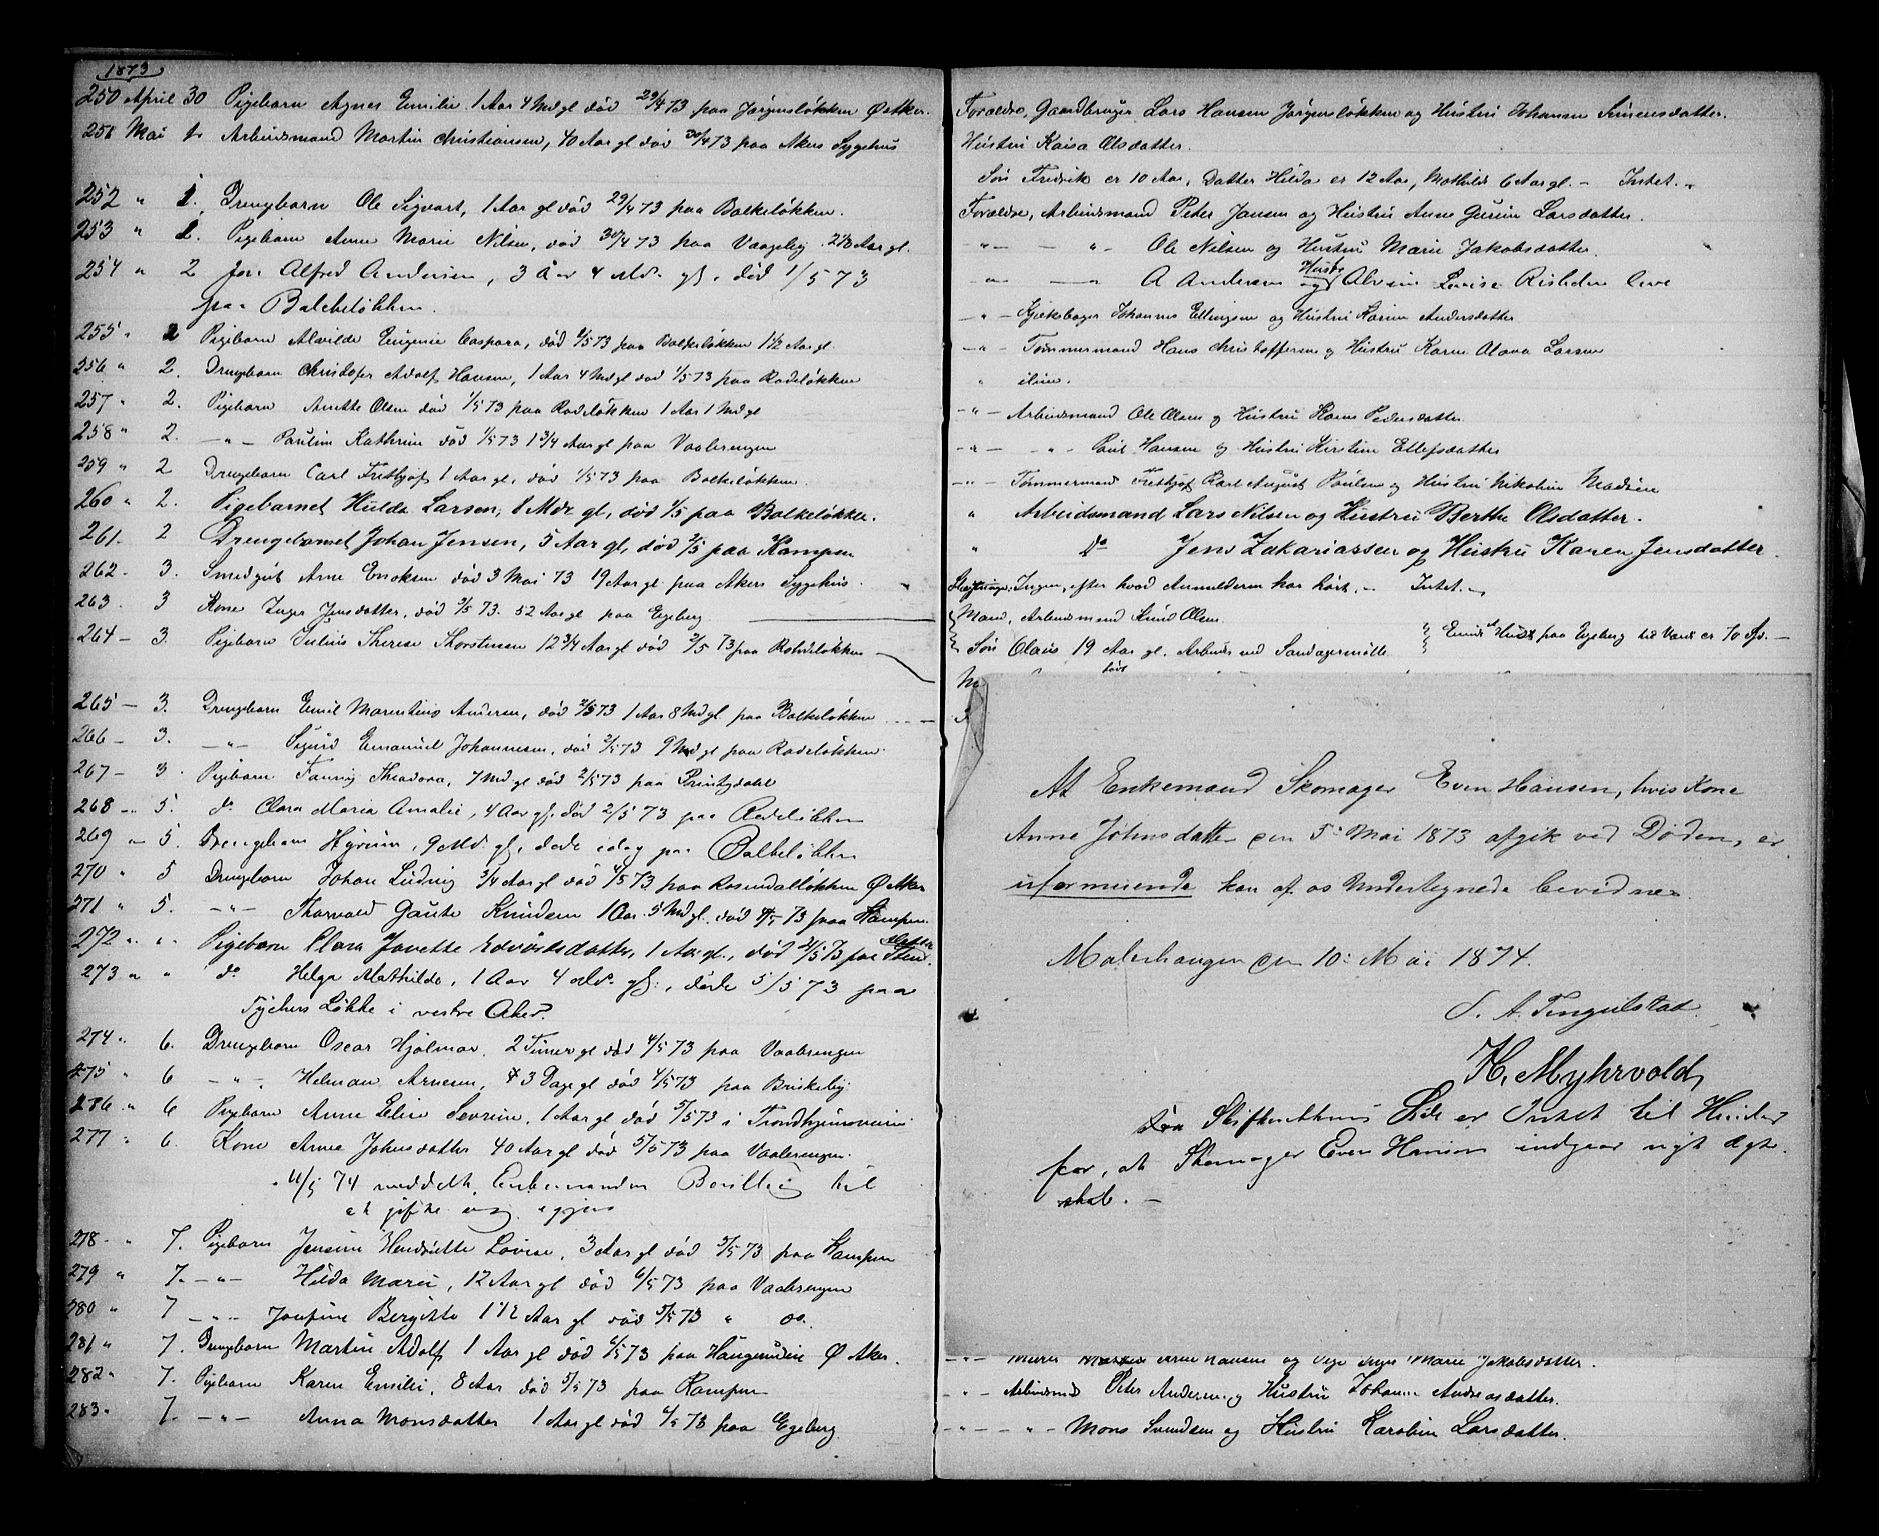 1873
250 April 30 Pigebarn Agnes Emilie 1 Aar 4 Md gl død 29/4 73 paa Jørgensløkken Østker.
251 Mai 1 Arbeidsmand Martin Christiansen, 40 Aar gl død 30/4 73 paa Akers Sygehus
252 " 1. Drengbarn Ole Sigvart, 1 Aar gl død 29/4 73 paa Balkeløkken.
253 " 1. Pigebarn Anne Marie Nilsen, død 30/4 73 paa Vaageby 2 1/2 Aar gl.
254 " 2 Jon Alfred Andersen, 3 Aar 4 Md. gl. død 1/5 73
paa Balkeløkken.
255 " 2 Pigebarn Alvilde Eugenie Caspara, død 1/5 73 paa Balkeløkken 1 1/2 Aar gl.
256 " 2. Drengbarn Christofer Adolf Hansen, 1 Aar 4 Md gl død 1/5 73 paa Rodeløkken
257 " 2. Pigebarn Anette Olsen død 1/5 73 paa Rodeløkken 1 Aar 1 Md gl
258 " 2. — " — Pauline Kathrine død 1/5 73 1 3/4 Aar gl paa Vaalerengen
259 " 2 Drengbarn Carl Frethjof 1 Aar gl, død 1/5 73 paa Balkeløkken.
260 " 2. Pigebarnet Hulda Larsen, 8 Mdr gl, død 1/5 paa Balkeløkke.
261. 2 Drengebarnet Johan Jensen, 5 Aar gl, død 2/5 paa Kampen
262 - 3. Smedgut Arne Enoksen død 3 Mai 73 19 Aar gl paa Akers Sygehus.
263. 3 Kone Inger Jensdatter, død 2/5 73. 52 Aar gl paa Egeberg
264 — 3. Pigebarn Julius Therese Thorstensen 12 3/4 Aar gl død 2/5 73 paa Rodeløkken
265 — 3. Drengbarn Emil Marentius Andersen, død 2/5 73 1 Aar 8 Md gl paa Balkeløkken
266 — 3. — " — Sigurd Emanuel Johannesen, død 2/5 73 9 Md gl paa Rodeløkken
267 — 3 Pigebarn Fanny Theodora, 7 Md gl død 2/5 73 paa
268 — 5. do Clara Maria Amalie, 4 Aar gl. død 2/5 73 paa Rodeløkken
269 " 5. Drengebarn 9 Md. gl, døde idag paa Balkeløkken
270 " 5 Drengbarn Johan Ludvig 3/4 Aar gl død 4/5 73 paa Rosendalløkken Ø Aker
271 " 5. — " — Thorvald Gaute Knudsen 1 Aar 5 Md gl. død 4/5 73 paa Kampen.
272 " " Pigebarn Clara Jovette Edvardsdatter, 1 Aar gl., død 2/5 73 paa
273 " " do Helga Mathilde, 1 Aar 4 Md. gl., døde 5/5 73 paa
Løkke i vestre Aker.
274 " 6. Drengbarn Oscar Hjalmar. 2 Timer gl død 4/5 73 paa Vaalerengen
275 " 6 — " — Helman Arnesen, 3 Dage gl død 4/5 73 paa Briskeby.
286 " 6 Pigebarn Anne Elise Severine, 1 Aar gl død 5/5 73 i Trondhjemsveien
277 " 6. Kone Anne Johnsdatter 40 Aar gl død 5/5 73 paa Vaalerengen.
11/5 74 meddelt Enkemanden Bevilling til
at gifte sig igjen
278 " 7. Pigebarn Jensine Hendriette Lovise. 3 Aar gl død 5/5 73 paa Kampen
279 " 7. — " — Hilda Marie, 12 Aar gl død 6/5 73 paa Vaalerengen
280 " 7 — " — Josefine Bergitte 1 1/2 Aar gl død 5/5 73 " do.
281 " 7. Drengbarn Martin Adolf 1 Aar gl død 6/5 73 paa Haugerudeie Ø Aker.
282 " 7. Pigebarn Karen Emilie, 8 Aar død 5/5 73 paa Kampen
283 " 7. — " — Anna Monsdatter 1 Aar gl død 6/5 73 paa Egeberg
Forældre, Gaardbruger Lars Hansen Jørgensløkken og Hustru Johanne Simensdatter.
Hustru Kaisa Olsdatter.
Søn Fredrik er 10 Aar, Datter Hilda er 12 Aar, Mathilde 6 Aar gl. — Intet.
Forældre, Arbeidsmand Peter Jansen og Hustru Anne Gurine Larsdatter.
— " — — " — Ole Nilsen og Hustru Marie Jakobsdatter.
— " — — " — A Andersen og Hustru Alvine Lovise leve
— " — Johannes Ellingsen og Hustru Karine Andersdatter
— " — Tømmermand Hans Christoffersen og Hustru Karen Olava Larsen
" ilive.
— " — Arbeidsmand Ole Olsen og Hustru Karen Pedersdatter
— " — — " — Paul Hansen og Hustru Kirstine Ellefsdatter
— " — Tømmermand Frethjof Karl August Paulsen og Hustru Nikoline Madsen
" Arbeidsmand Lars Nilsen og Hustru Berthe Olsdatter.
" Do Jens Zakariassen og Hustru Karen Jensdatter.
Ingen, efter hvad Anmelderen har hørt. — Intet. —
Mand, Arbeidsmand Knud Olsen.
Søn Olaus 19 Aar gl. Arbeider ved Sandagermølle
Hus paa Egeberg til Værdi er 70 Spd. —
At Enkemand Skomager Even Hansen, hvis Kone
Anne Johnsdatter den 5. Mai 1873 afgik ved Døden, er
uformuende kan af os Undertegnede bevidnes.
Malerhaugen den 10. Mai 1874.
A. Tingulstad.
H. Myhrvold,
Fra Skifterettens Side er Intet til Hinder
for, at Skomager Even Hansen indgaar nyt Ægte-
skab. —
— " — Murer Hansen og Pige Marie Jakobsdatter.
— " — Arbeidsmd Peter Andersen og Hustru Johanne Andreasdatter.
— " — — " — Mons Svendsen og Hustru Karoline Larsdatter.